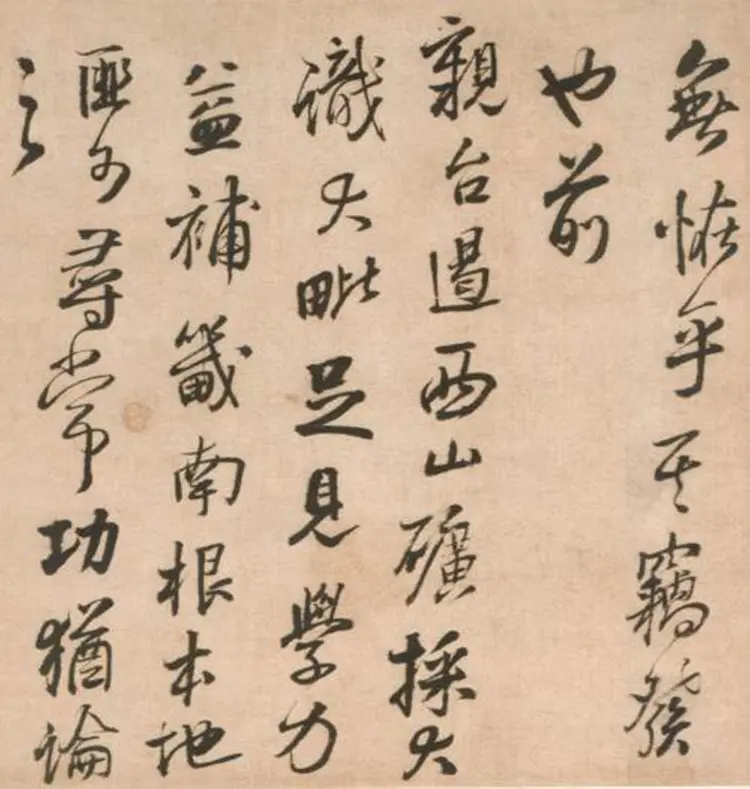 無怪乎其竊發
也前
親台遏西山礦採大
識大毗足見學力
益補畿南根本地
匪可尋常功猶論
之